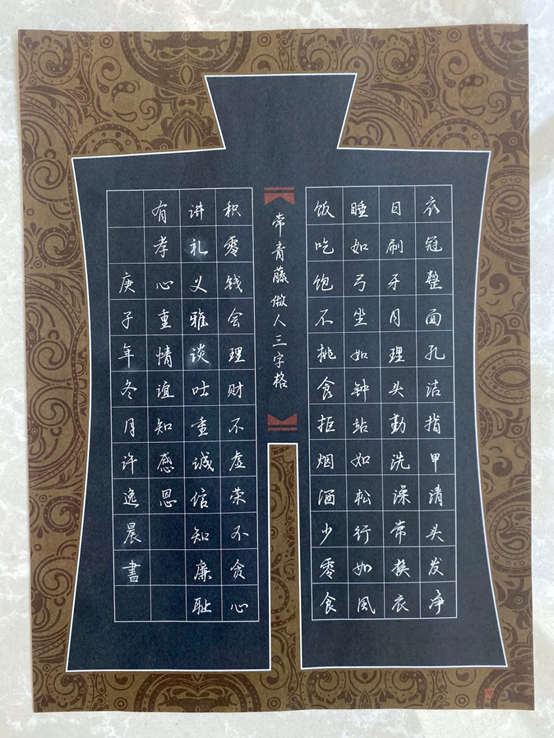 衣冠整面孔洁指甲清头发净
日刷牙月理头勤洗澡常换衣
睡如弓坐如钟站如松行如风
饭吃饱不挑食拒烟酒少零食
常青藤做人三字格
积零钱会理财不虚荣不贪心
讲礼义雅谈吐重诚信知廉耻
有孝心重情谊知感恩
庚子年冬月许逸晨書